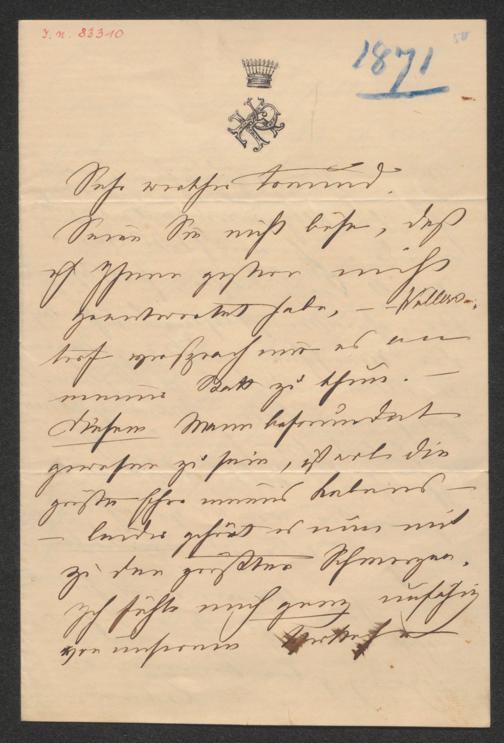 I.N. 83310
1871
Sehr werther Freund.
Seien Sie nicht böse, daß
ich Ihnen gestern nicht
geantwortet habe, –
versprach mir es an
meiner Statt zu thun. –
Diesem Mann befreundet
gewesen zu sein, ist die
größte Ehre meines Lebens –
– leider gehört es nun mit
zu den größten Schmerzen.
Ich fühle mich ganz unfähig
von unserem